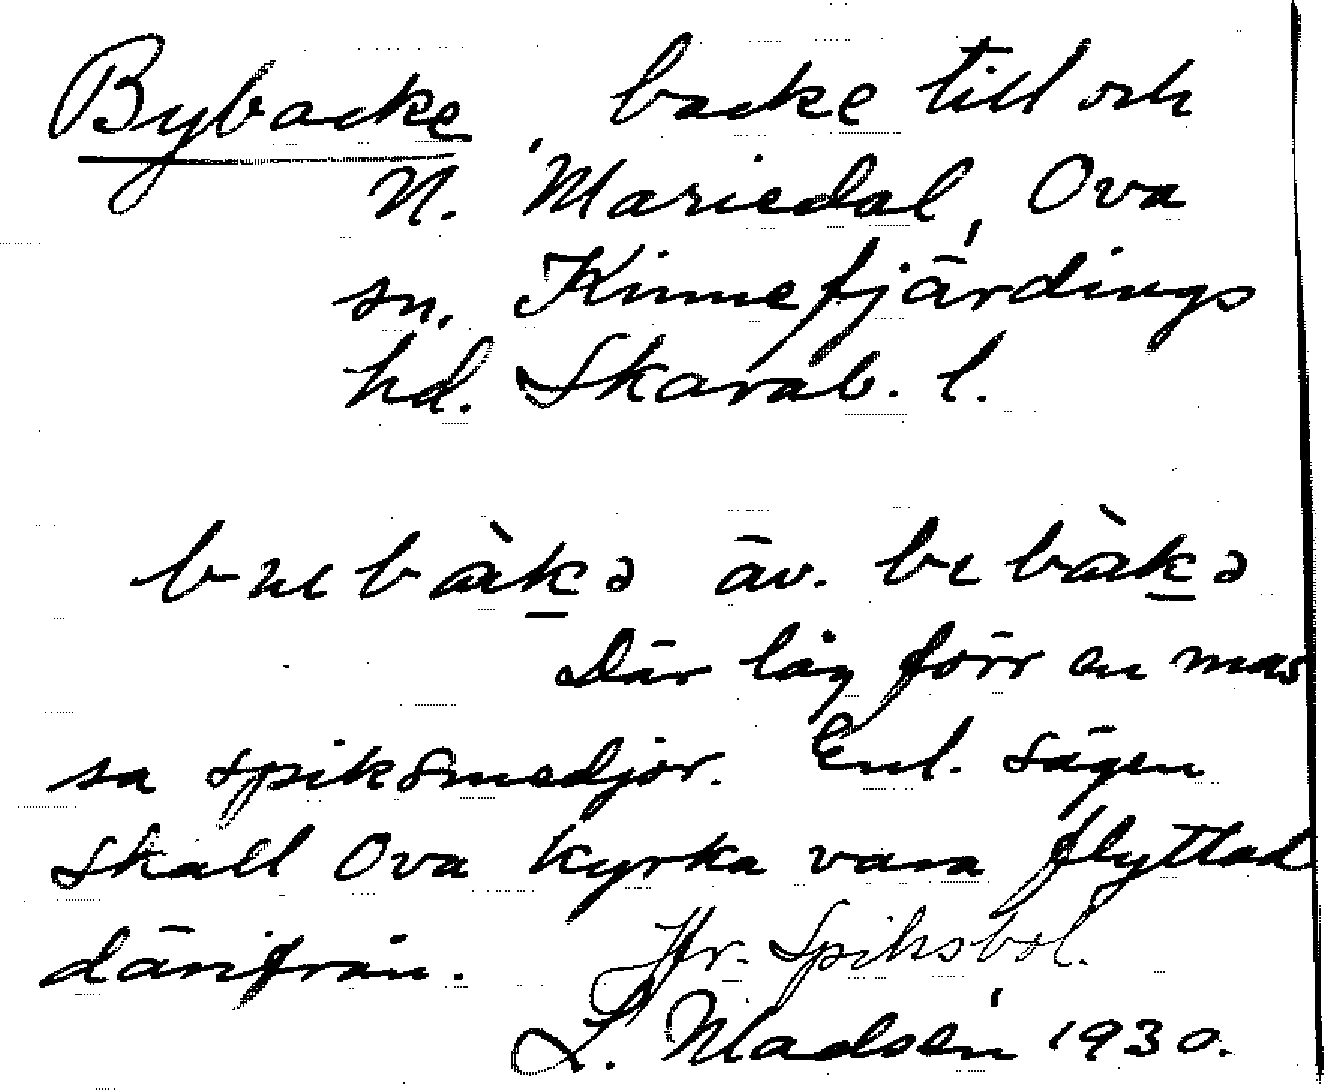 Bybacke, backe till och
N. Mariedal, Ova
sn, Kinnefjärdings
hd. Skarab. l.
äv.
Där låg förr en mas
sa spiksmedjor. Enl. sägen
skall Ova kyrka vara flyttad
därifrån. Jfr. Spiksbol.
L. Madsén 1930.